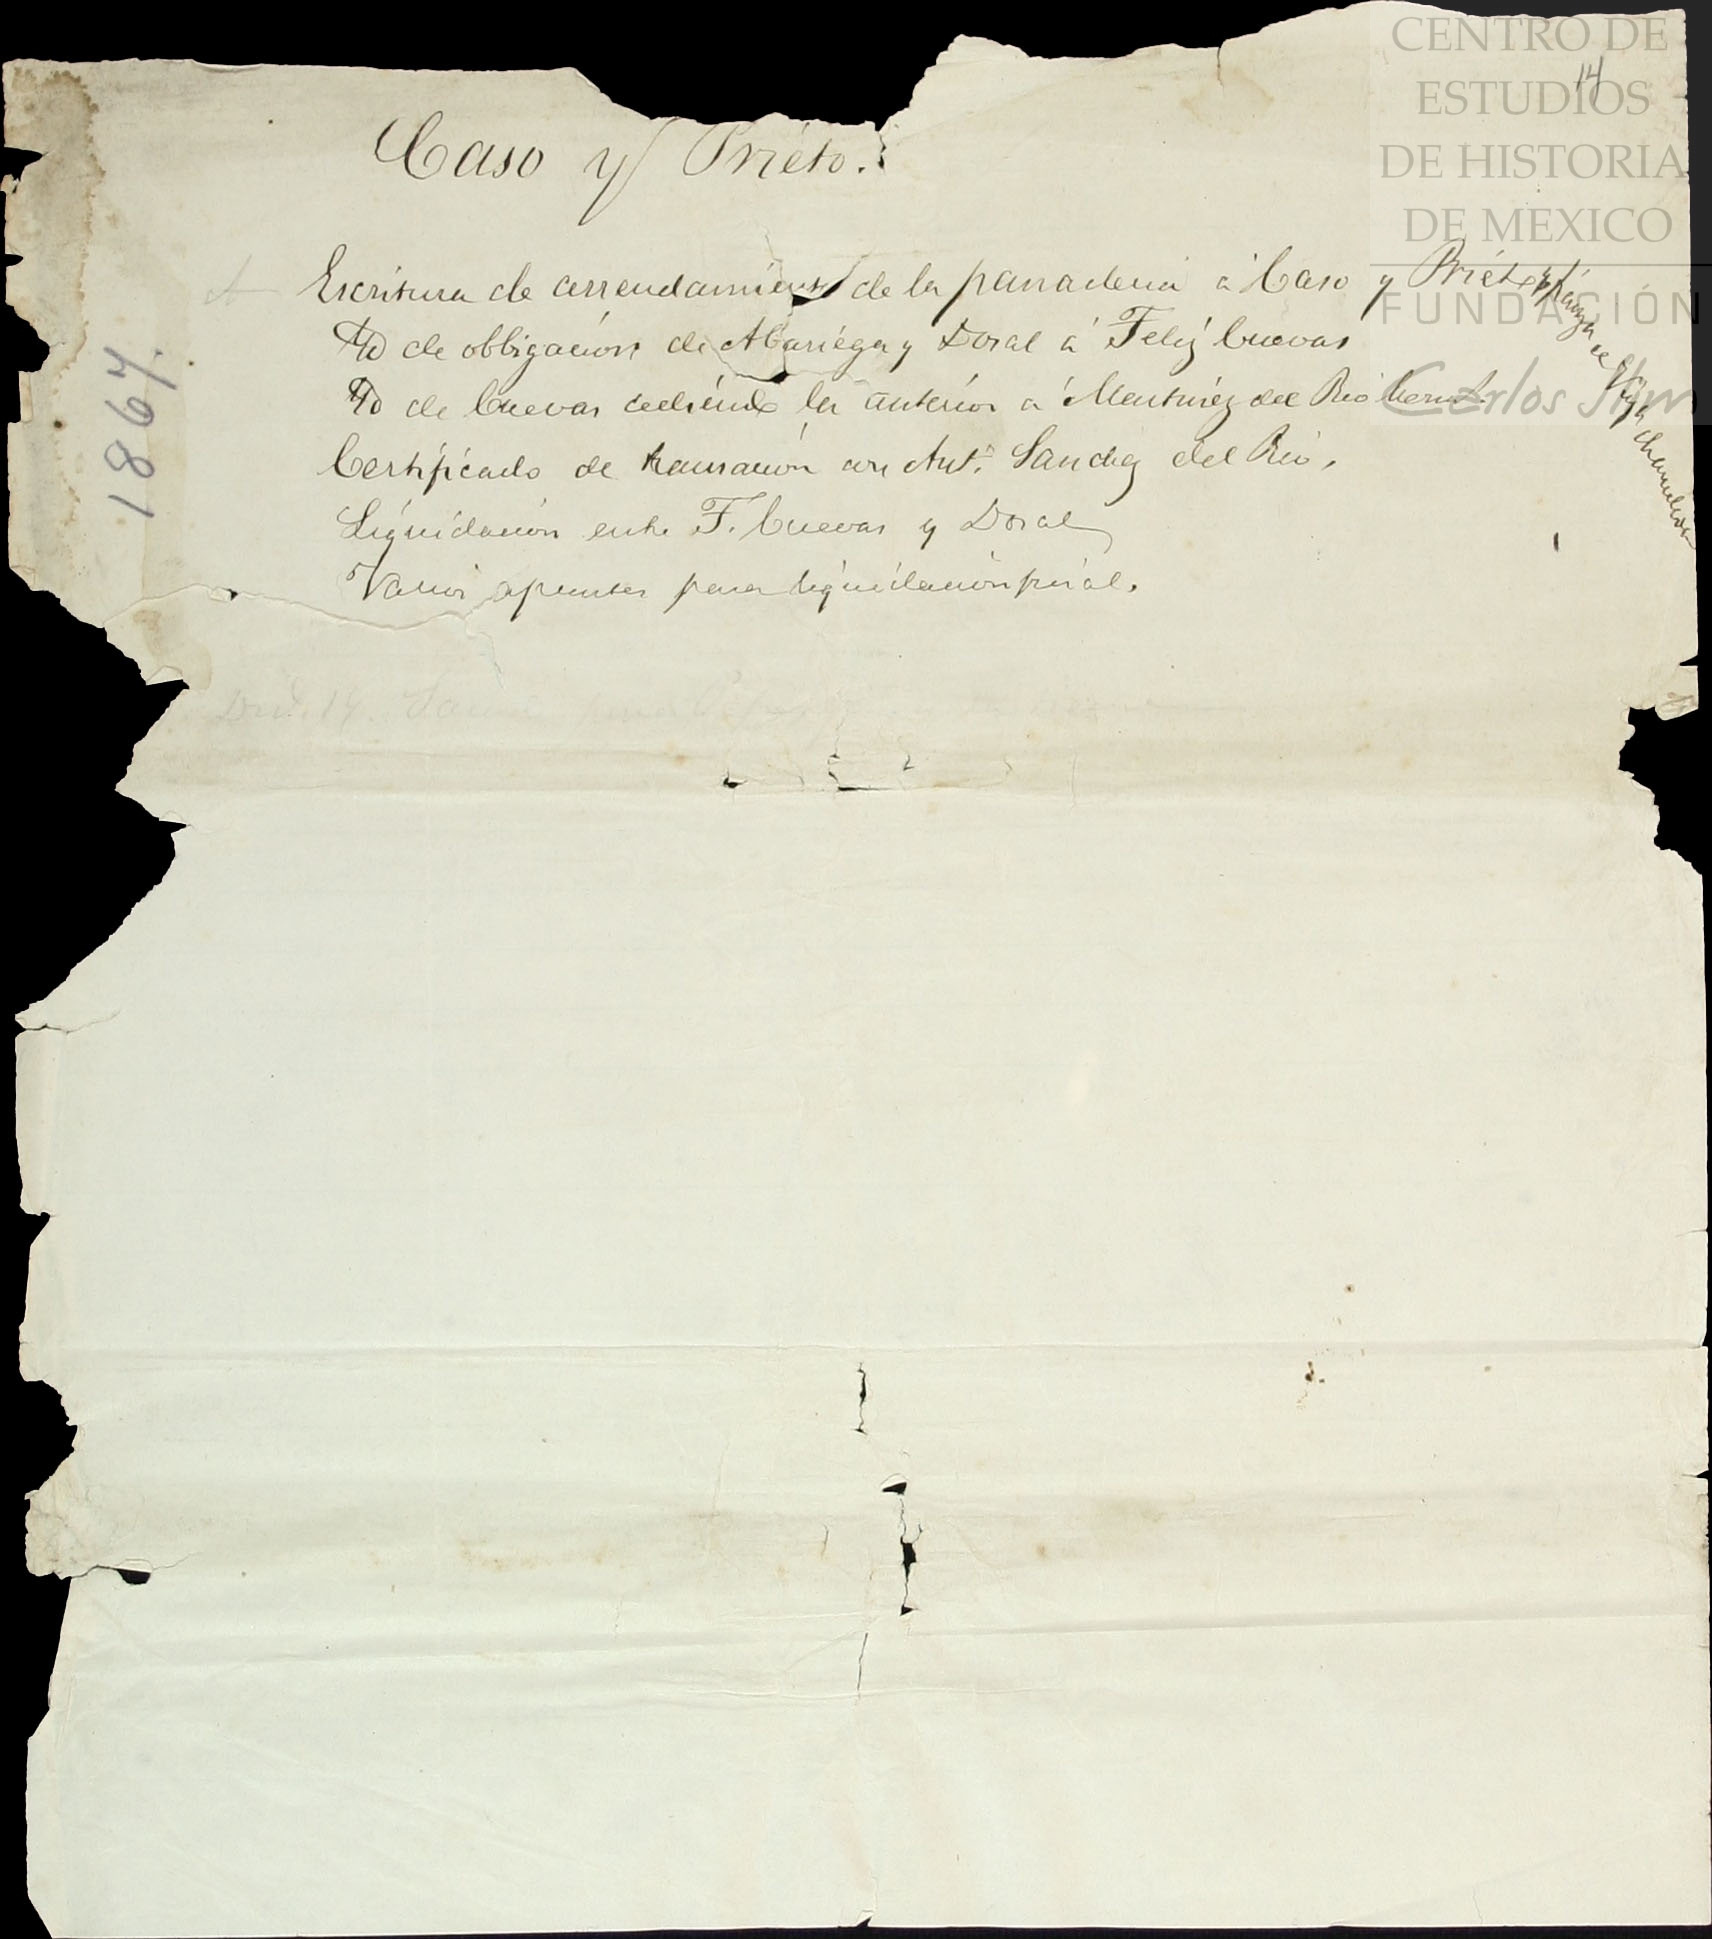 CENTRO DE
ESTUDIOS
DE HISTORIA
DE MEXICO
FUNDACIÓN
Carlos Slim
14
1867.
Caso y Priéto.
Escritura de arrendamiento de la panaderia á Caso y Priéto y fianza de
Yd de obligación de Noriéga y Doral á Feliz Cuevas
Yd de Cuevas cediéndo la antérior á Martinez del Rio herms.
Certificado de transación con Ant.º Sanchez del Rio.
Liquidación entre F. Cuevas y Doral
Varios apuntes para liquidación final.